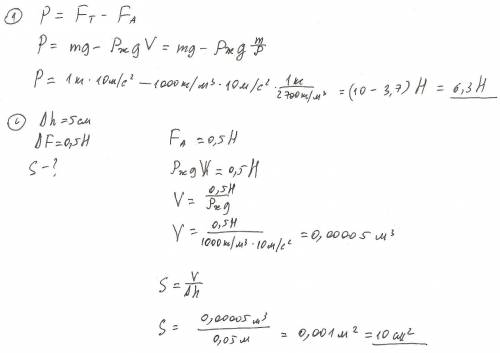 ① P = Fт - FA
P = mg - ρж g V = mg - ρж g m/ρ
P = 1кг · 10м/с² - 1000кг/м³ · 10м/с² · 1кг/2700кг/м³ = (10 - 3,7) H = 6,3H
② Δh = 5см
ΔF = 0,5H
S - ?
FA = 0,5H
ρж g V = 0,5H
V = 0,5H/ρж g
V = 0,5H/1000кг/м³ · 10м/с² = 0,00005 м³
S = V/Δh
S = 0,00005 м³/0,05м = 0,001м² = 10 см²